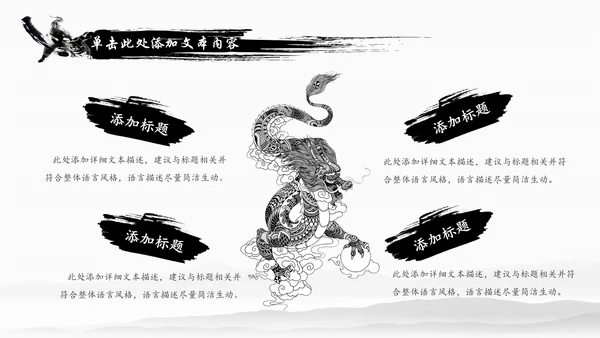 单击此处添加文本内容
添加标题
此处添加详细文本描述，建议与标题相关并
符合整体语言风格，语言描述尽量简洁生动。
添加标题
此处添加详细文本描述，建议与标题相关并符
合整体语言风格，语言描述尽量简洁生动。
添加标题
此处添加详细文本描述，建议与标题相关并
符合整体语言风格，语言描述尽量简洁生动。
添加标题
此处添加详细文本描述，建议与标题相关并符
合整体语言风格，语言描述尽量简洁生动。